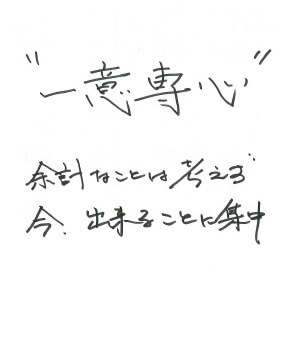 "一意専心"
余計なことは考えず
今、出来ることに集中